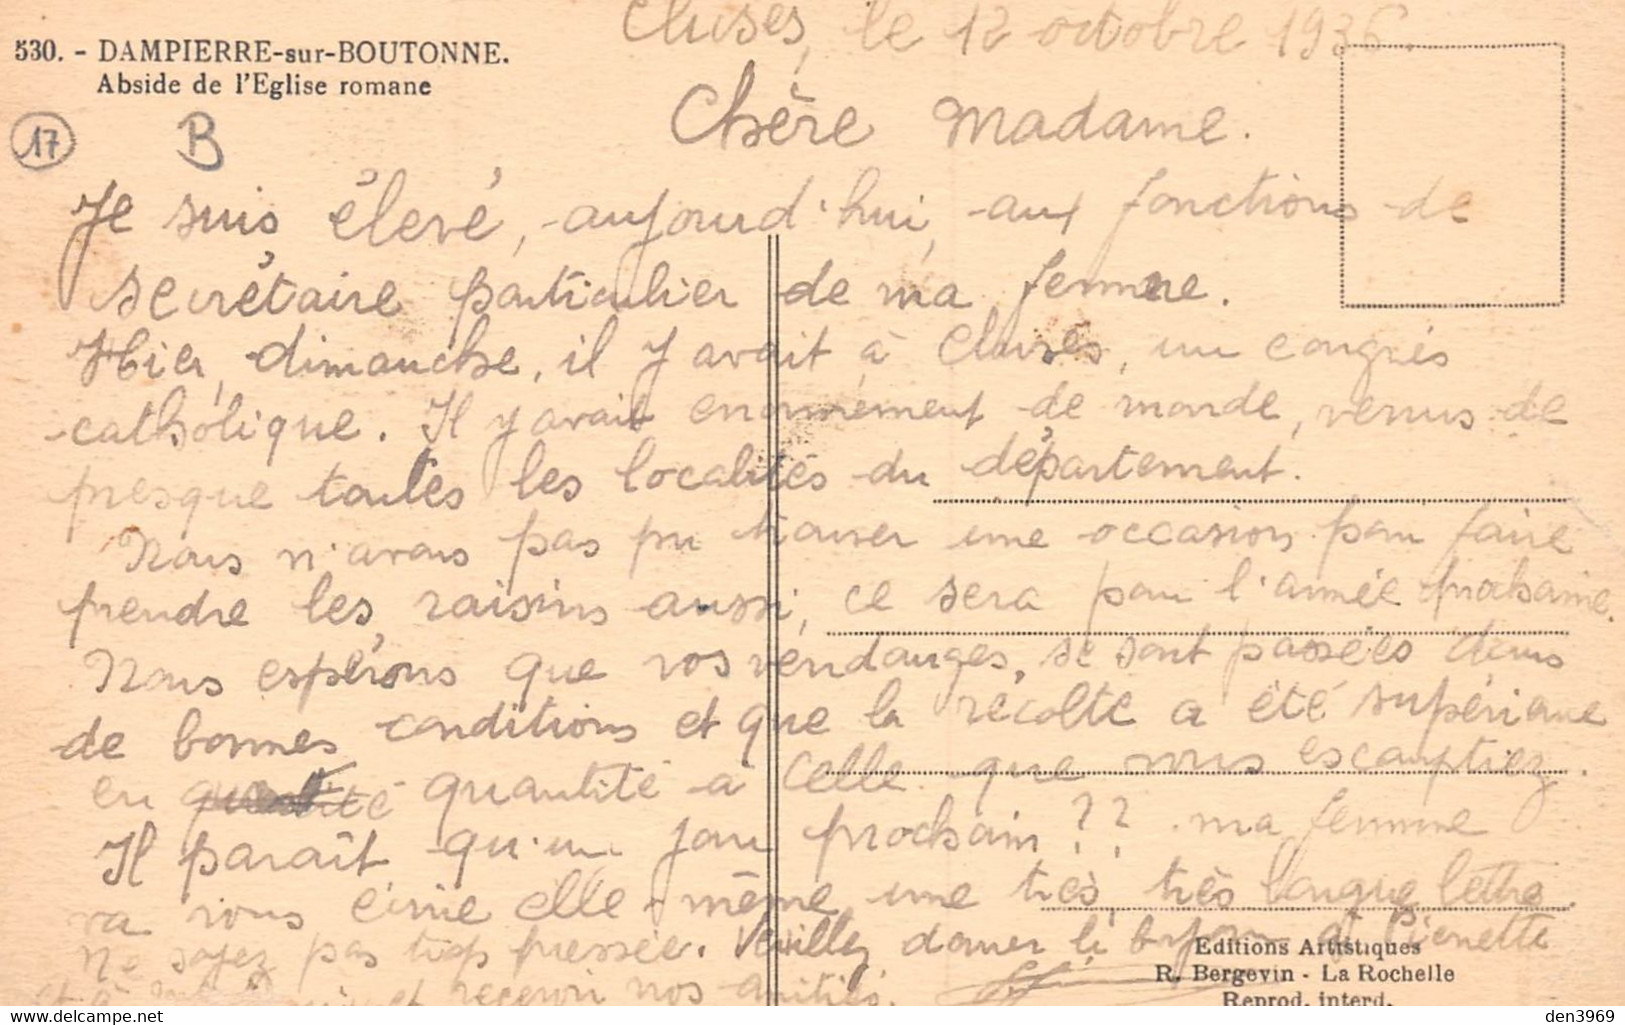 530. - DAMPIERRE-sur-BOUTONNE.
Abside de l'Eglise romane
17 B
Cluses, le 12 octobre 1936.
Chère Madame.
Je suis élevé, aujourd'hui, aux fonctions de
secrétaire particulier de ma femme.
Hier, dimanche, il y avait à Cluses, un congrès
catholique. Il y avait enormément de monde, venus de
presque toutes les localités du département.
Nous n'avons pas pu trouver une occasion pour faire
prendre les raisins aussi, ce sera pour l'année prochaine.
Nous espérons que vos vendanges, se sont passées dans
de bonnes conditions et que la récolte a été supérieure
en qualité quantité à celle que vous escomptiez.
Il paraît qu'un jour prochain ?? ma femme
va vous écrire elle-même, une très, très longue lettre.
Ne soyez pas trop pressée. Veuillez donner le bonjour à Pierrette
recevoir nos amitiés.
Editions Artistiques
R. Bergevin - La Rochelle
Reprod. interd.
delcampe.net
den3969